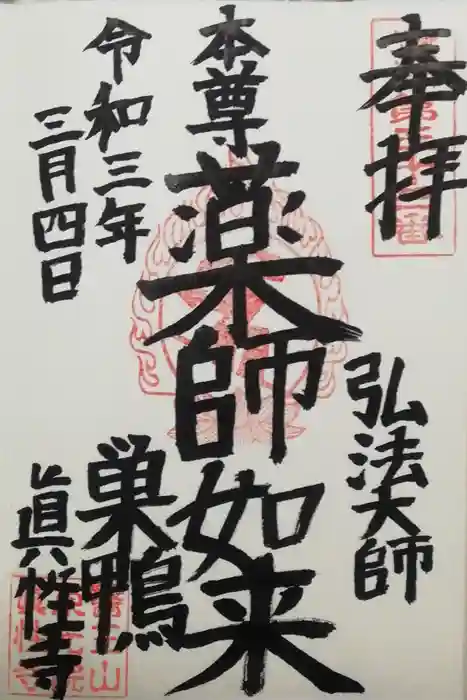 奉拝
弘法大師
本尊
薬師如来
巣鴨
令和三年
三月四日
眞性寺